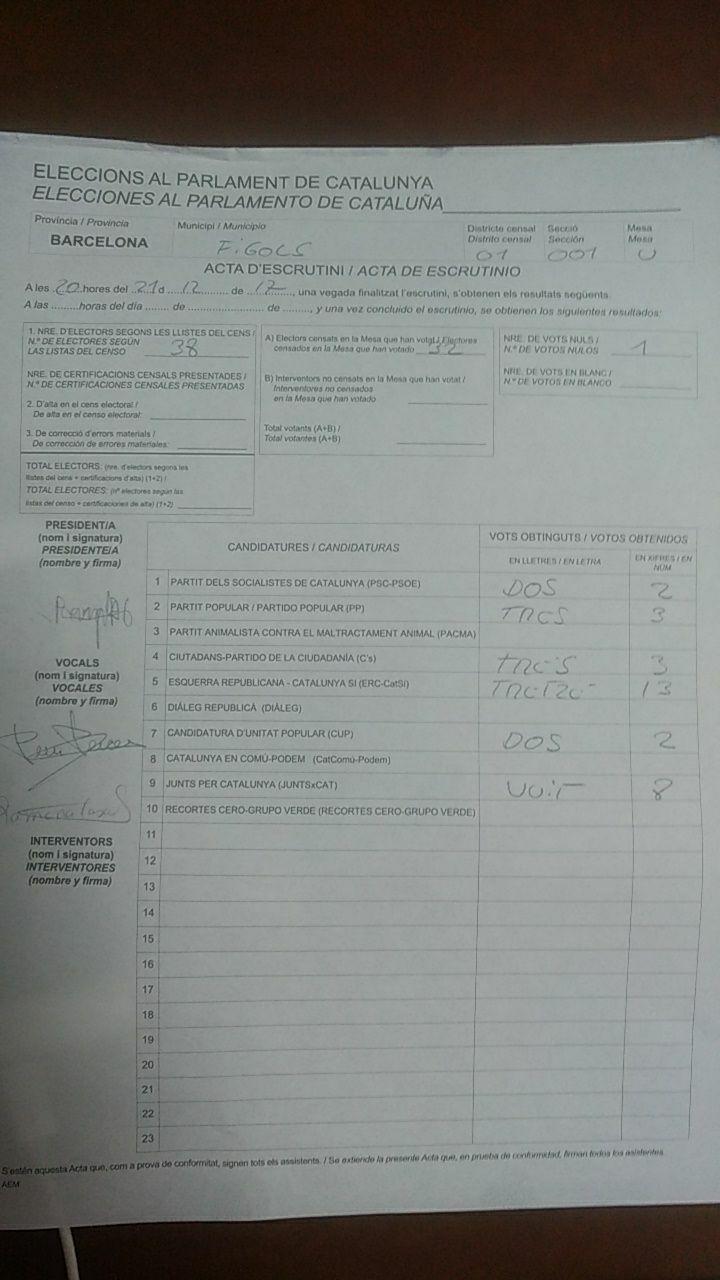 ELECCIONS AL PARLAMENT DE CATALUNYA
ELECCIONES AL PARLAMENTO DE CATALUÑA
Província / Provincia
BARCELONA
Municipi / Municipio
FiGOLS
Districte censal
Distrito censal
01
Secció
Sección
001
Mesa
Mesa
U
ACTA D'ESCRUTINI / ACTA DE ESCRUTINIO
A les 20 hores del 21 d 12 de 17, una vegada finalitzat l'escrutini, s'obtenen els resultats següents:
A las .........horas del día ....... de ........................ de ........, y una vez concluido el escrutinio, se obtienen los siguientes resultados:
1. NRE. D'ELECTORS SEGONS LES LLISTES DEL CENS /
N.º DE ELECTORES SEGÚN
LAS LISTAS DEL CENSO 38
NRE. DE CERTIFICACIONS CENSALS PRESENTADES /
N.º DE CERTIFICACIONES CENSALES PRESENTADAS
2. D'alta en el cens electoral /
De alta en el censo electoral:
3. De correcció d'errors materials /
De corrección de errores materiales:
TOTAL ELECTORS: (nre. d'electors segons les
llistes del cens + certificacions d'alta) (1+2) /
TOTAL ELECTORES: (nº electores según las
listas del censo + certificaciones de alta) (1+2)
A) Electors censats en la Mesa que han votat / Electores
censados en la Mesa que han votado 32
B) Interventors no censats en la Mesa que han votat /
Interventores no censados
en la Mesa que han votado
Total votants (A+B) /
Total votantes (A+B)
NRE. DE VOTS NULS /
N.º DE VOTOS NULOS 1
NRE. DE VOTS EN BLANC /
N.º DE VOTOS EN BLANCO
PRESIDENT/A
(nom i signatura)
PRESIDENTE/A
(nombre y firma)
VOCALS
(nom i signatura)
VOCALES
(nombre y firma)
INTERVENTORS
(nom i signatura)
INTERVENTORES
(nombre y firma)
CANDIDATURES / CANDIDATURAS
VOTS OBTINGUTS / VOTOS OBTENIDOS
EN LLETRES / EN LETRA
EN XIFRES / EN NÚM
1 PARTIT DELS SOCIALISTES DE CATALUNYA (PSC-PSOE) DOS 2
2 PARTIT POPULAR / PARTIDO POPULAR (PP) TRES 3
3 PARTIT ANIMALISTA CONTRA EL MALTRACTAMENT ANIMAL (PACMA)
4 CIUTADANS-PARTIDO DE LA CIUDADANÍA (C's) TRES 3
5 ESQUERRA REPUBLICANA - CATALUNYA SÍ (ERC-CatSí) TRETZE 13
6 DIÀLEG REPUBLICÀ (DIÀLEG)
7 CANDIDATURA D'UNITAT POPULAR (CUP) DOS 2
8 CATALUNYA EN COMÚ-PODEM (CatComú-Podem)
9 JUNTS PER CATALUNYA (JUNTSxCAT) VUiT 8
10 RECORTES CERO-GRUPO VERDE (RECORTES CERO-GRUPO VERDE)
11
12
13
14
15
16
17
18
19
20
21
22
23
S'estén aquesta Acta que, com a prova de conformitat, signen tots els assistents. / Se extiende la presente Acta que, en prueba de conformidad, firman todos los asistentes.
AEM